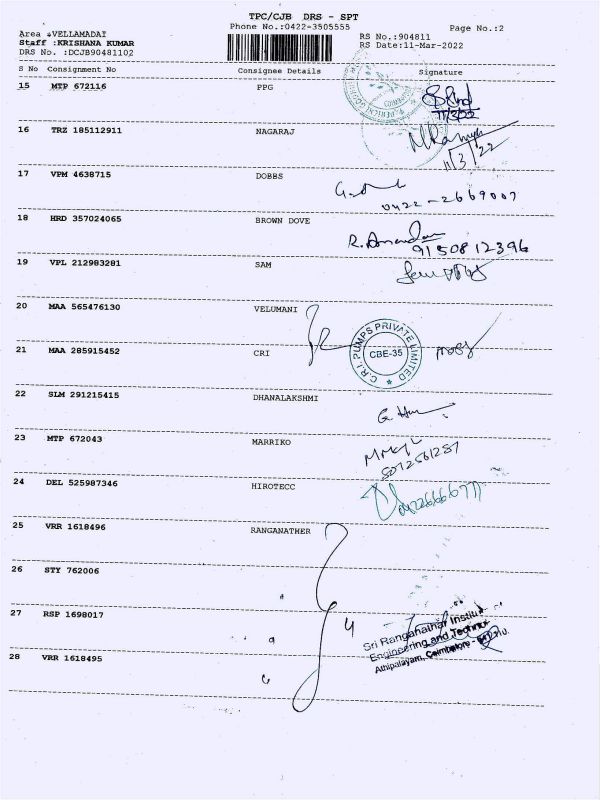 TPC/CJB DRS - SPT
Phone No.:0422-3505555
Page No.:2
Area :VELLAMADAI
Staff :KRISHANA KUMAR
DRS No. :DCJB90481102
RS No.:904811
RS Date:11-Mar-2022
S No Consignment No Consignee Details Signature
15 MTP 672116 PPG
11/3/22
16 TRZ 185112911 NAGARAJ
11/3/22
17 VPM 4638715 DOBBS
0422-2669007
18 HRD 357024065 BROWN DOVE
R. Anandan
9150812396
19 VPL 212983281 SAM
20 MAA 565476130 VELUMANI
21 MAA 285915452 CRI
C.R.I. PUMPS PRIVATE LIMITED
CBE-35
22 SLM 291215415 DHANALAKSHMI
23 MTP 672043 MARRIKO
24 DEL 525987346 HIROTECC
25 VRR 1618496 RANGANATHER
26 STY 762006
27 RSP 1698017
4
Sri Ranganathar Institu
Engineering and Techno
Athipalayam, Coimbatore -
28 VRR 1618495